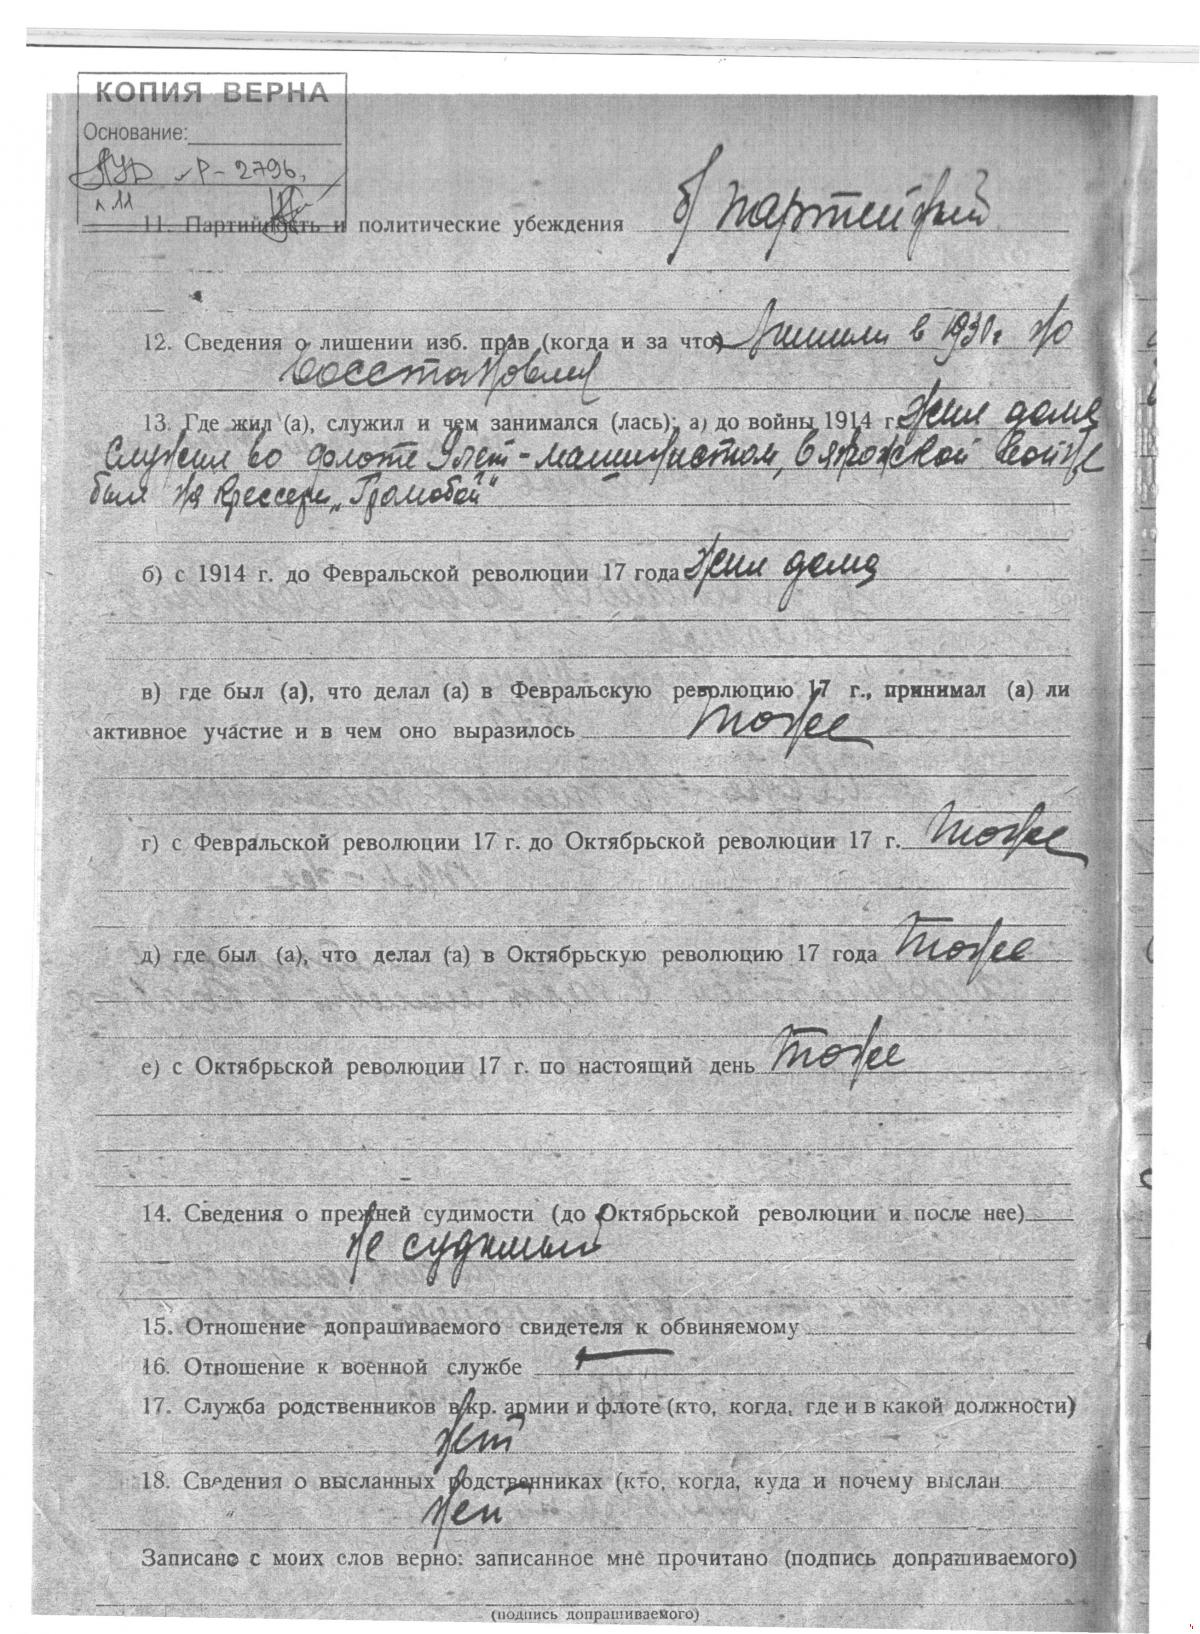 КОПИЯ ВЕРНА
Основание:
АУД № Р-2796,
л. 11
11. Партийность и политические убеждения б/партейный
12. Сведения о лишении изб. прав (когда и за что) Лишили в 1930 г. но
восстановлен
13. Где жил (а), служил и чем занимался (лась); а) до войны 1914 г. Жил дома
Служил во флоте 9 лет - машинистом, в японской войне
был на крессере „Громобой"
б) с 1914 г. до Февральской революции 17 года жил дома
в) где был (а), что делал (а) в Февральскую революцию 17 г., принимал (а) ли
активное участие и в чем оно выразилось тоже
г) с Февральской революции 17 г. до Октябрьской революции 17 г. тоже
д) где был (а), что делал (а) в Октябрьскую революцию 17 года тоже
е) с Октябрьской революции 17 г. по настоящий день тоже
14. Сведения о прежней судимости (до Октябрьской революции и после нее)
не судимый
15. Отношение допрашиваемого свидетеля к обвиняемому
16. Отношение к военной службе
17. Служба родственников в кр. армии и флоте (кто, когда, где и в какой должности)
нет
18. Сведения о высланных родственниках (кто, когда, куда и почему выслан
нет
Записано с моих слов верно: записанное мне прочитано (подпись допрашиваемого)
(подпись допрашиваемого)